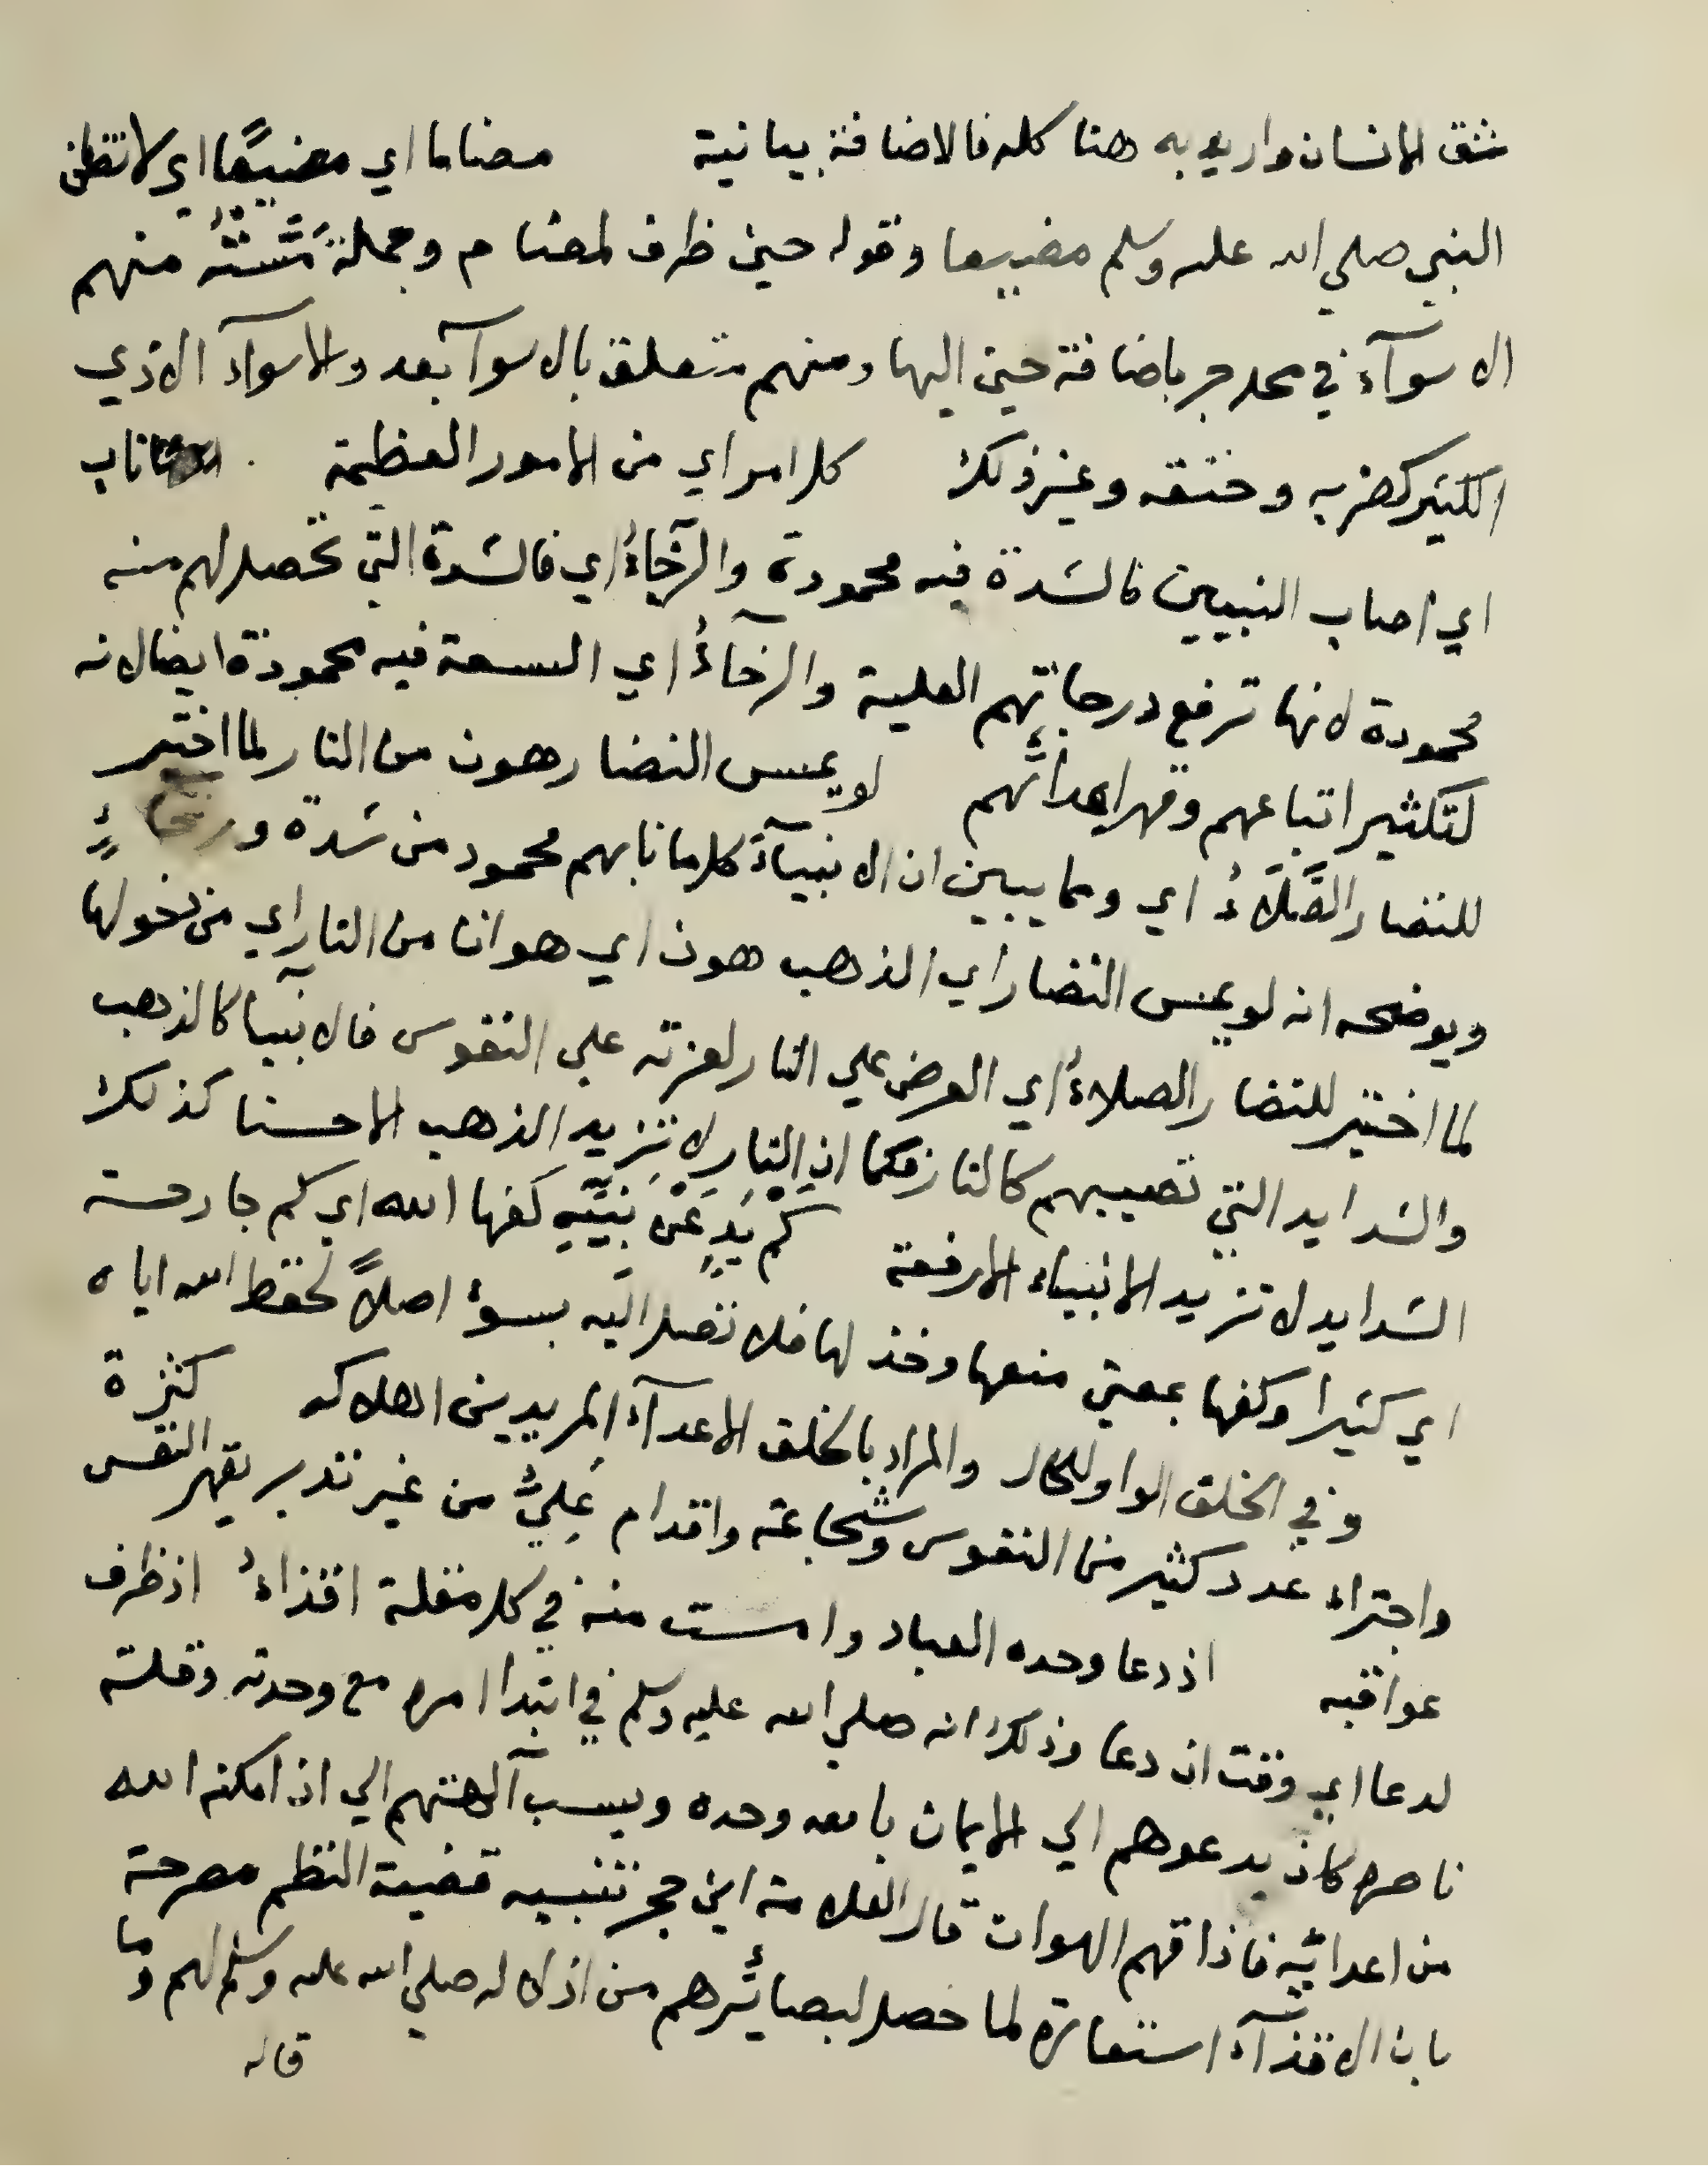 شق الانسان واريد به هنا كله فالاضافة بيانية مضاما اي مضيعا اي لا تظن
النبي صلي الله عليه وسلم مضيعا وقوله حين ظرف لمضام وجملة مَسَّتْهُ منهم
الاسوآء في محل جر باضافة حين اليها ومنهم متعلق بالاسوآ بعد والاسوآء الاذي
الكثير كضربه وخنقه وغير ذلك كل امر اي من الامور العظيمة ناب
اي اصاب النبيين فالشدة فيه محمودة والرخآءُ اي فالشدة التي تحصل لهم منه
محمودة لانها ترفع درجاتهم العلية والرخآءُ اي السعة فيه محمودة ايضا لانه
لتكثير اتباعهم وقهر اعدائهم لو يمس النضار هون من النار لما اختير
للنضار الصَّلَاءُ اي ومما يبين ان الانبيآء كل ما نابهم محمود من شدة ورخاءٍ
ويوضحه انه لو يمس النضار اي الذهب هون اي هوان من النار اي من دخولها
لما اختير للنضار الصلاءُ اي العرض علي النار لعزته علي النفوس فالانبيآ كالذهب
والشدايد التي تصيبهم كالنار فكما ان النار لا تزيد الذهب الا حسنا كذلك
الشدايد لا تزيد الانبياء الا رفعة كَمْ يَدٍ عَنْ نَبِيِّهِ كفها الله اي كم جارحة
اي كثيرا وكفها بمعني منعها وخذلها فلا تصل اليه بسوء اصلاً لحفظ الله اياه
وفي الخلق الواو للحال والمراد بالخلق الاعدآء المريدين اهلاكه كثرة
واجتراء عدد كثير من النفوس وشجاعة واقدام عَلِيٌّ من غير تدبر يقهر النفس
عواقبه اذ دعا وحده العباد وامست منه في كل مقلة اقذاءُ اذ ظرف
لدعا اي وقت ان دعا وذلك انه صلي الله عليه وسلم في ابتدا امره مع وحدته وقلة
ناصره كان يدعوهم الي الايمان بالله وحده ويسب آلهتهم الي ان امكنه الله
من اعدائه فاذاقهم الهوان قال العلامة ابن حجر تنبيه قضية النظم مصرحة
بان الاقذآء استعارة لما حصل لبصائرهم من اذلاله صلي الله عليه وسلم لهم وما
قاله